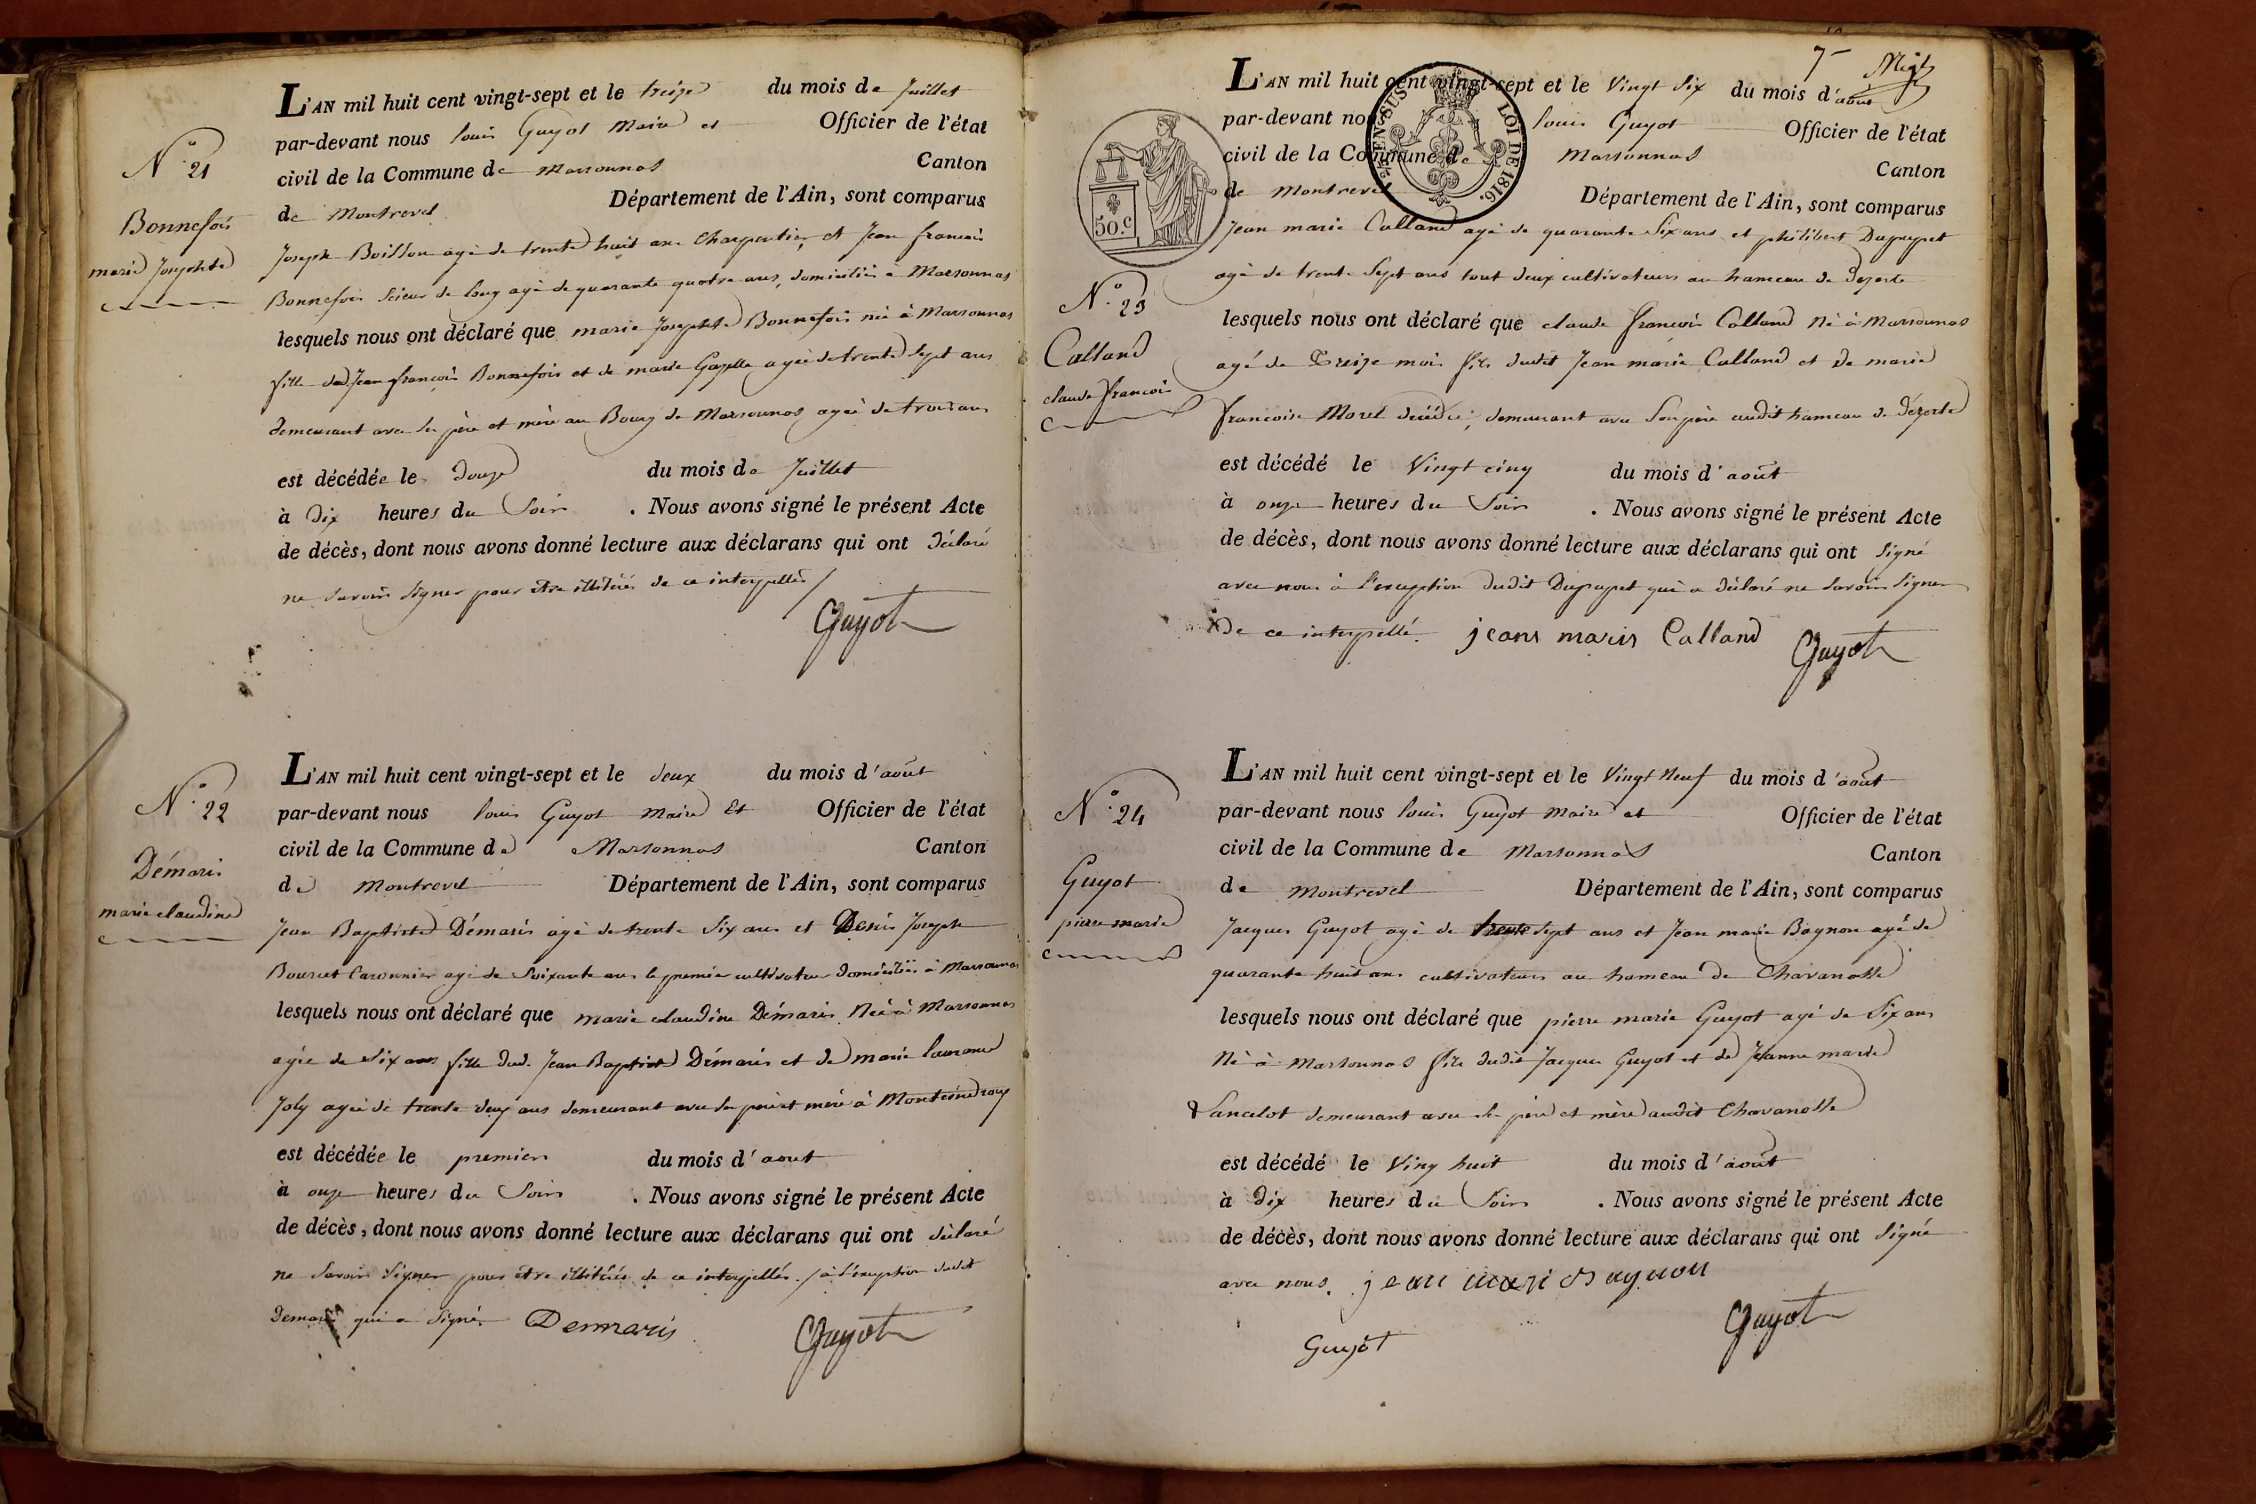 N.° 21
Bonnefois
marie Josephte
L'AN mil huit cent vingt-sept et le treize du mois de Juillet
par-devant nous louis Guyot Maire et Officier de l'état
civil de la Commune de Marsonnas Canton
de Montrevel Département de l'Ain, sont comparus
Joseph Boillon agé de trente huit ans Charpentier et Jean francois
Bonnefois Scieur de long agé de quarante quatre ans, domiciliés à Marsonnas
lesquels nous ont déclaré que marie Josephte Bonnefois née à Marsonnas
fille dud. Jean françois Bonnefois et de marie Gazelle agée de trente sept ans
demeurant avec ses père et mère au Bourg de Marsonnas agée de trois ans
est décédée le douze du mois de Juillet
à Dix heures du Soir . Nous avons signé le présent Acte
de décès, dont nous avons donné lecture aux déclarans qui ont déclaré
ne savoir signer pour être illitérés de ce interpellés /
Guyot
N.° 22
Démaris
marie claudine
L'AN mil huit cent vingt-sept et le deux du mois d'août
par-devant nous louis Guyot maire Et Officier de l'état
civil de la Commune de Marsonnas Canton
de Montrevel Département de l'Ain, sont comparus
Jean Baptiste Démaris agé de trente Six ans et Denis Joseph
agé de Soixante ans le premier cultivateur domiciliés à Marsonnas
lesquels nous ont déclaré que marie claudine Démaris Née à Marsonnas
agée de Six ans fille dud. Jean Baptiste Démaris et de marie laurence
Joly agée de trente deux ans demeurant avec ses père et mère à
est décédée le premier du mois d'aout
à onze heures du Soir . Nous avons signé le présent Acte
de décès, dont nous avons donné lecture aux déclarans qui ont déclaré
ne Savoir Signer pour être illitérés de ce interpellés / à l'exception dudit
Demaris qui a Signé. Demaris
Guyot
7
LOI DE 1816.
50.c
N.° 23
Calland
claude francois
L'AN mil huit cent vingt-sept et le Vingt Six du mois d'août
par-devant nous louis Guyot Officier de l'état
civil de la Commune de Marsonnas Canton
de Montrevel Département de l'Ain, sont comparus
Jean marie Calland agé de quarante Six ans et philibert Dupupet
agé de trente Sept ans tout deux cultivateurs au hameau de Dezerte
lesquels nous ont déclaré que claude françois Calland Né à Marsonnas
agé de Treize mois fils dudit Jean marie Calland et de marie
francoise Morel décédée; demeurant avec Son père audit hameau de Dézerte
est décédé le Vingt cinq du mois d'août
à onze heures du Soir . Nous avons signé le présent Acte
de décès, dont nous avons donné lecture aux déclarans qui ont Signé
avec nous à l'exception dudit Dupupet qui a déclaré ne Savoir Signer
De ce interpellé. jeans maris Calland Guyot
N.° 24
Guyot
pierre marie
L'AN mil huit cent vingt-sept et le Vingt Neuf du mois d'août
par-devant nous louis Guyot Maire et Officier de l'état
civil de la Commune de Marsonnas Canton
de Montrevel Département de l'Ain, sont comparus
Jacques Guyot agé de trente Sept ans et Jean marie Bagnon agé de
quarante huit ans cultivateurs au hameau de Chavanosse
lesquels nous ont déclaré que pierre marie Guyot agé de Six ans
Né à Marsonnas fils dudit Jacques Guyot et de Jeanne marie
Lancelot demeurant avec Ses père et mère audit Chavanosse
est décédé le Ving huit du mois d'août
à Dix heures du Soir . Nous avons signé le présent Acte
de décès, dont nous avons donné lecture aux déclarans qui ont Signé
avec nous. jean mari Bagnon
Guyot
Guyot